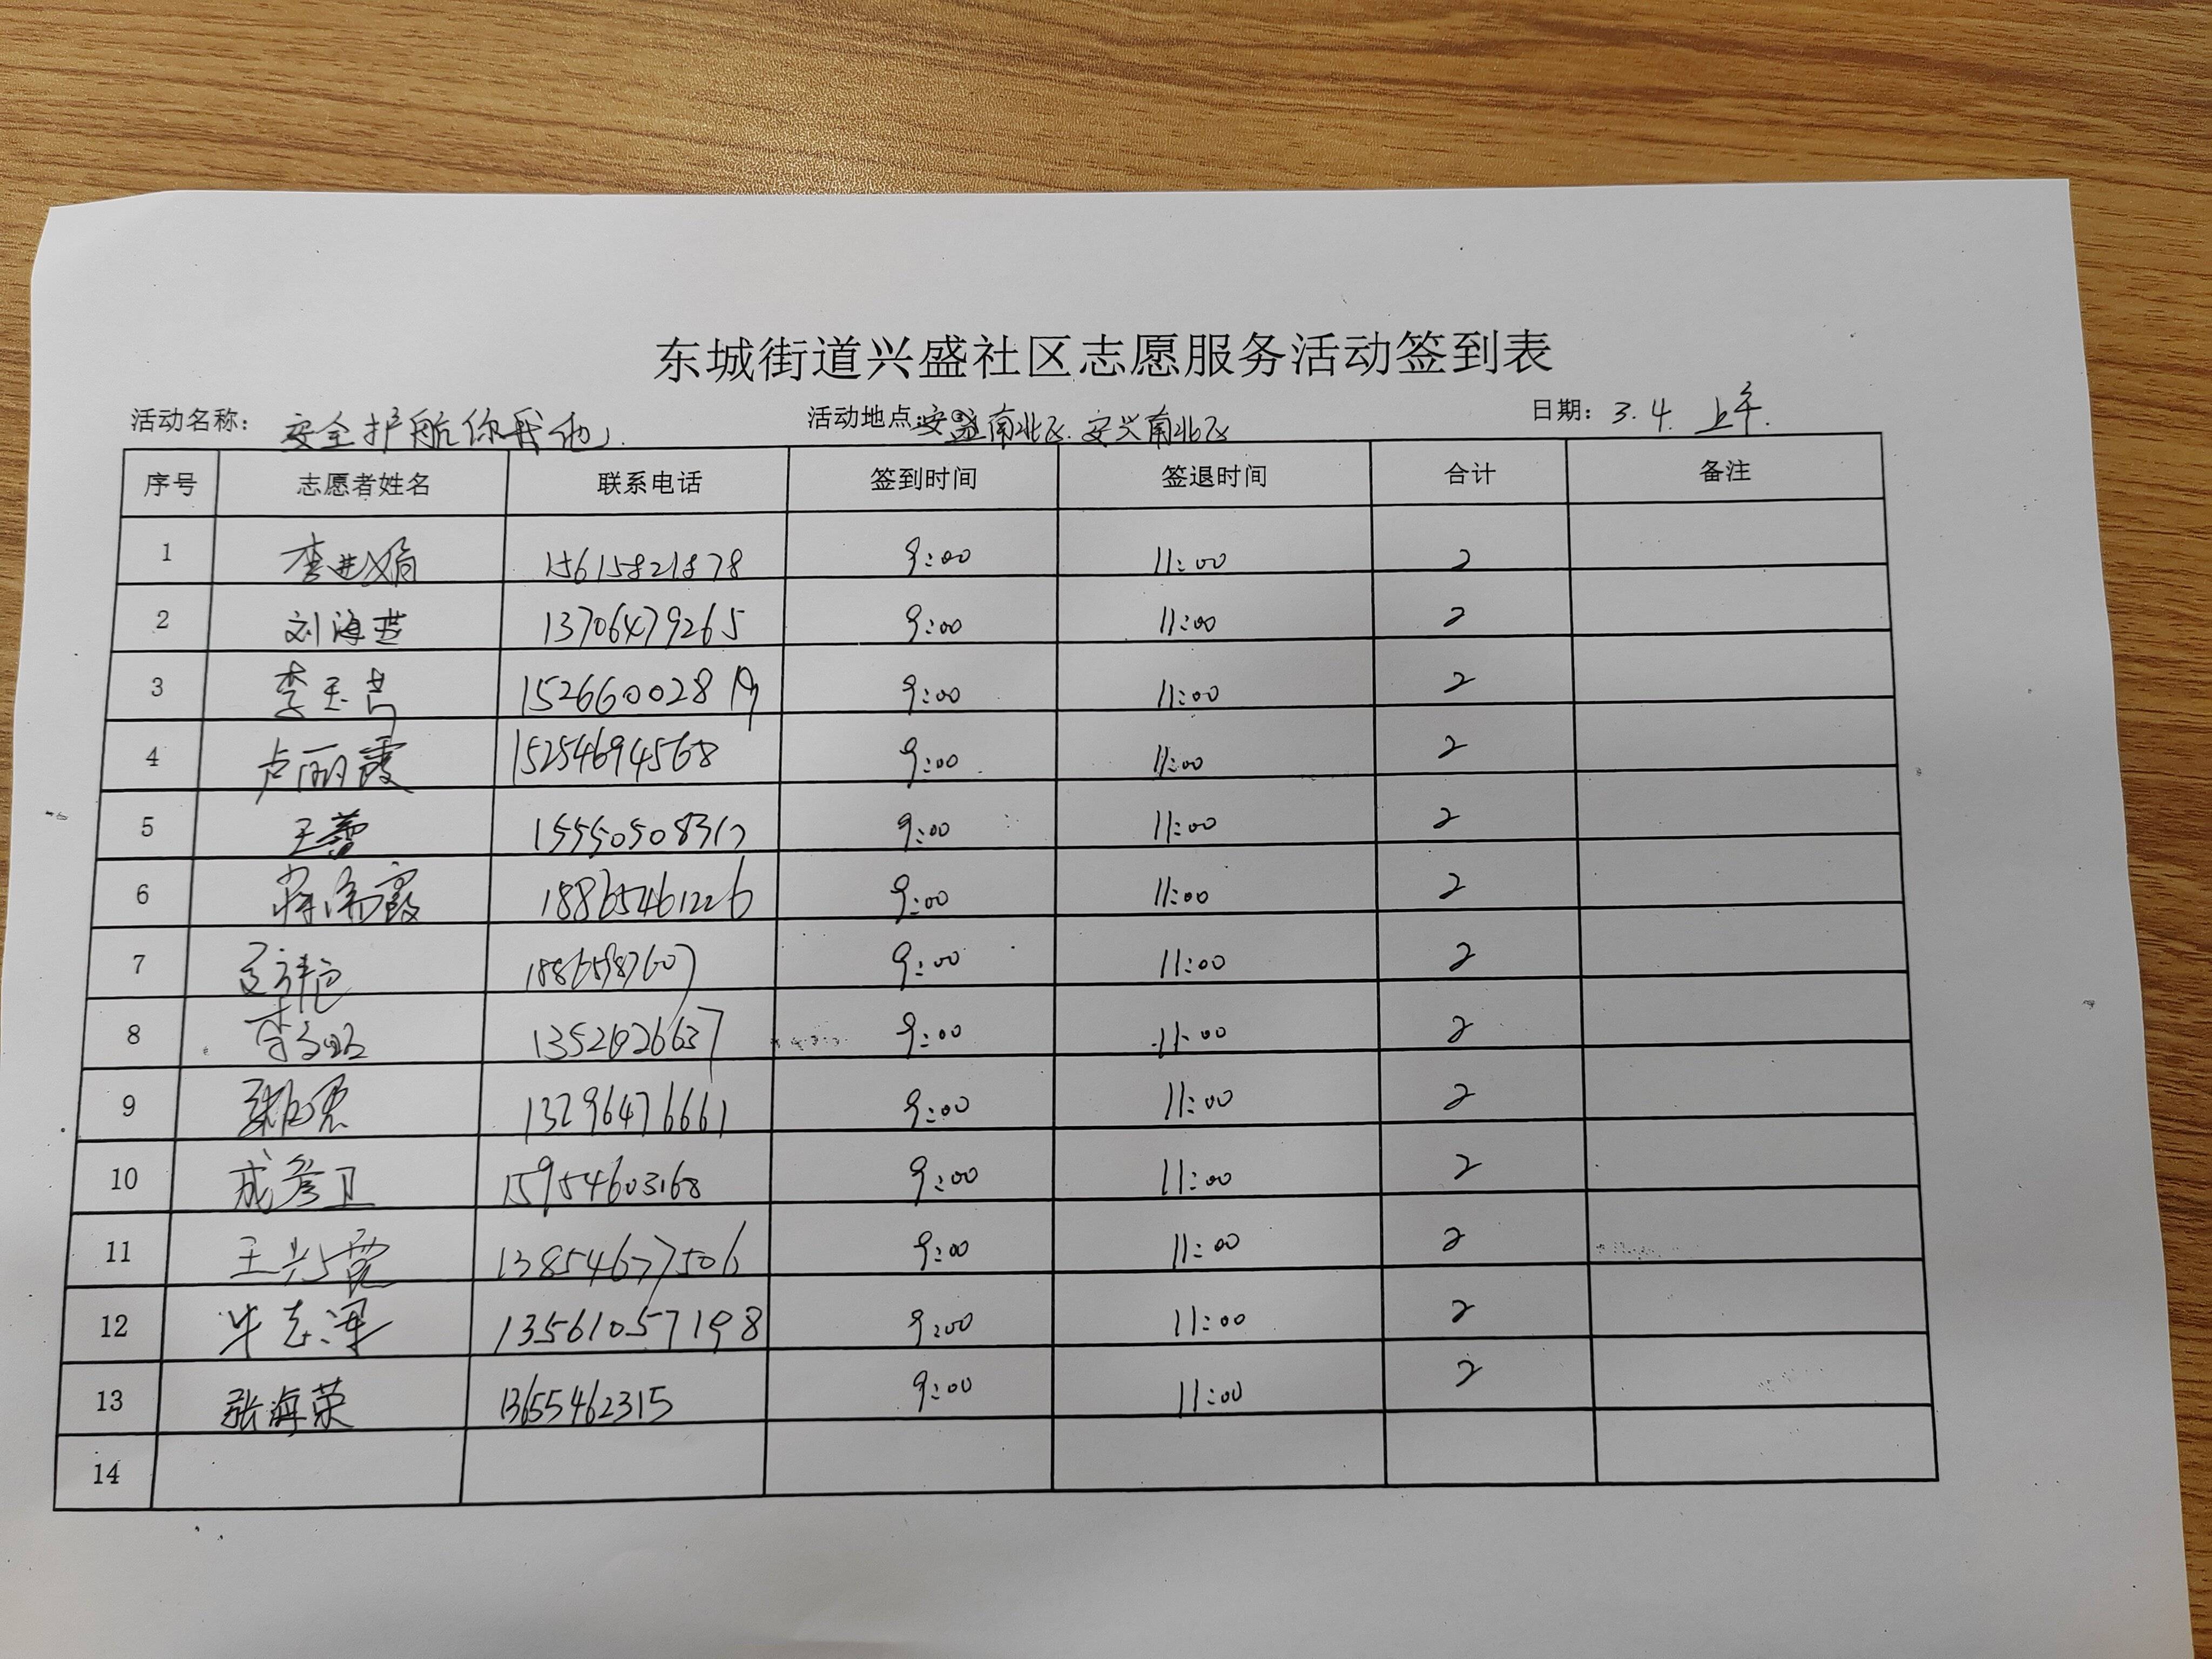 东城街道兴盛社区志愿服务活动签到表
活动名称: 安全护航你我他. 活动地点:安盛南北区.安兴南北区 日期: 3.4. 上午.
序号 志愿者姓名 联系电话 签到时间 签退时间 合计 备注
1 李进娟 15615821878 9:00 11:00 2
2 刘海燕 13706479265 9:00 11:00 2
3 李玉芹 9:00 11:00 2
4 卢丽霞 15254694568 9:00 11:00 2
5 王蕾 15550508317 9:00 11:00 2
6 18865461226 9:00 11:00 2
7 9:00 11:00 2
8 9:00 11:00 2
9 13296476661 9:00 11:00 2
10 成彦卫 15954603168 9:00 11:00 2
11 13854677506 9:00 11:00 2
12 13561057198 9:00 11:00 2
13 张海荣 13655462315 9:00 11:00 2
14